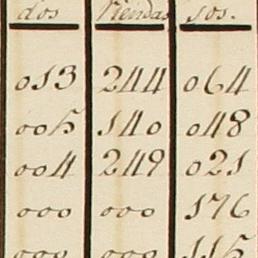 dos Viendas sos.
013 244 064
005 140 048
004 249 021
000 000 176
000 000 115